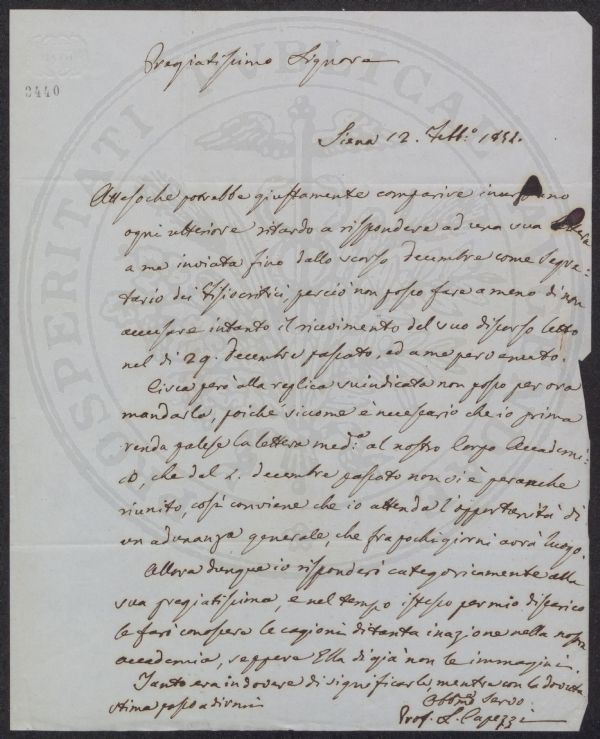 3440
Pregiatissimo Signore
Siena 12. Febb.º 1832.
Attesoche potrebbe giustamente comparire inurbano
ogni ulteriore ritardo a rispondere ad una sua lettera
a me inviata fino dallo scorso decembre come Segre-
tario dei Fisiocritici, perciò non posso fare a meno di non
accusare intanto il ricevimento del suo discorso letto
nel dì 29. decembre passato, ed a me pervenuto.
Circa però alla replica non posso per ora
mandarla, poiché siccome è necessario che io prima
renda palese la lettera med.ª al nostro Corpo Accademi-
co, che dal decembre passato non si è per anche
riunito, così conviene che io attenda l'opportunità di
un adunanza generale, che fra pochi giorni avrà luogo.
Allora dunque io risponderò categoricamente alla
sua pregiatissima, e nel tempo istesso per mio disparico
le farò conoscere le cagioni di tanta inazione nella nostra
accademia, seppure Ella di già non le immagini.
Tanto era in dovere di significarle, mentre con la dovuta
stima passo a dirmi
Obbmo Servo
Prof.
PROSPERITATI PUBLICAE